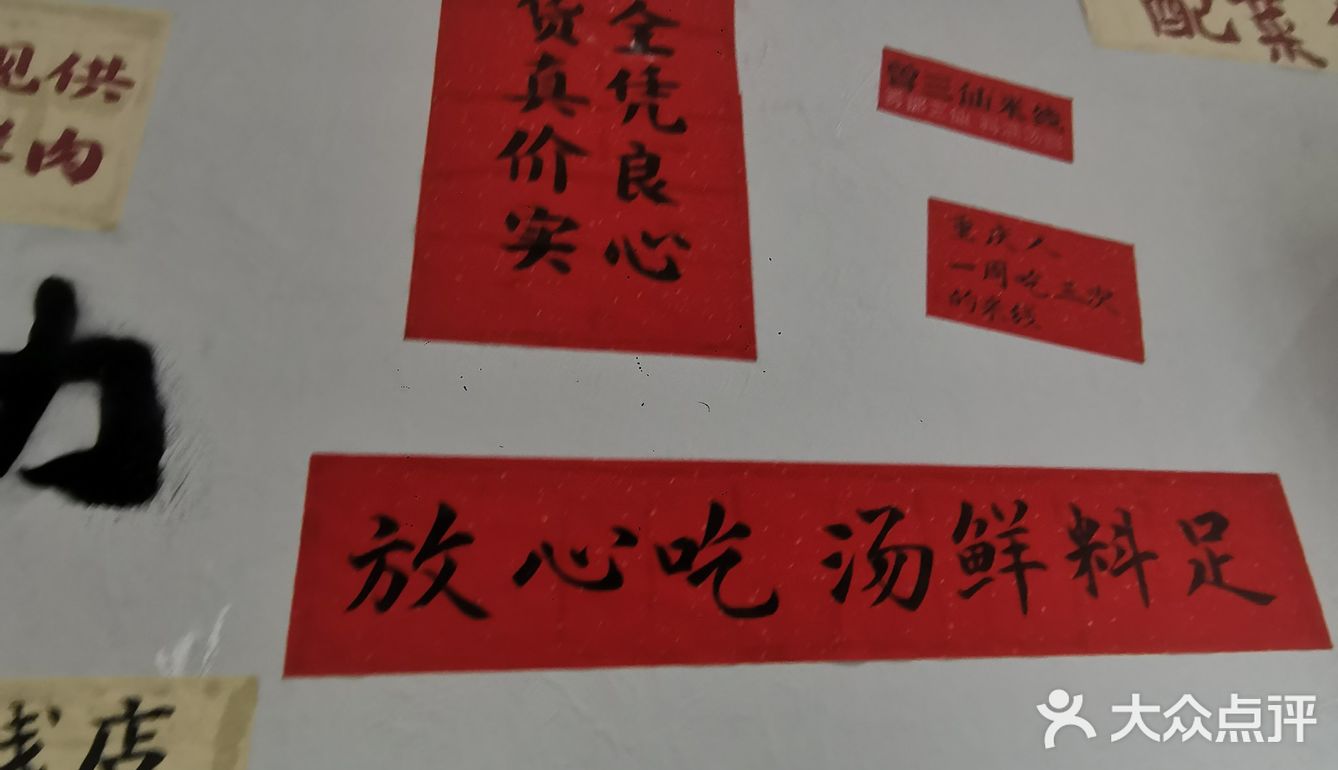 现供
羊肉
全凭良心
货真价实
曾三仙米线
配菜
重庆人
一周吃三次
的米线
力
放心吃 汤鲜料足
线店
大众点评